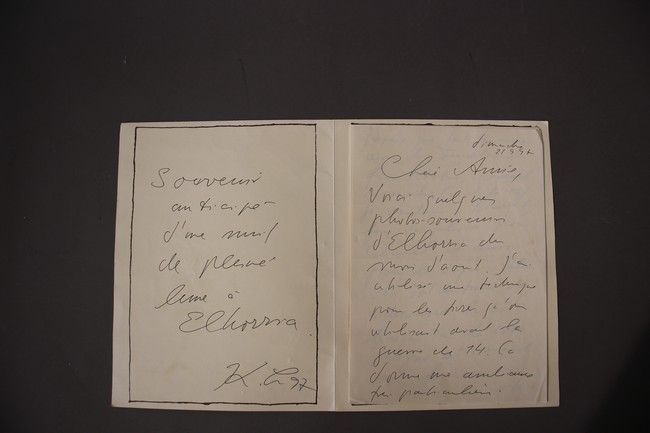 Souvenir
anticipé
d'une nuit
de pleine
lune à
Elhorria.
K. 97
dimanche
21 9 97
Chère Annie,
Voici quelques
photos-souvenirs
d'Elhorria du
mois d'aout. J'ai
utilisé une technique
pour les tirer qu'on
utilisait avant la
guerre de 14. Ca
donne une ambiance
très particulière.